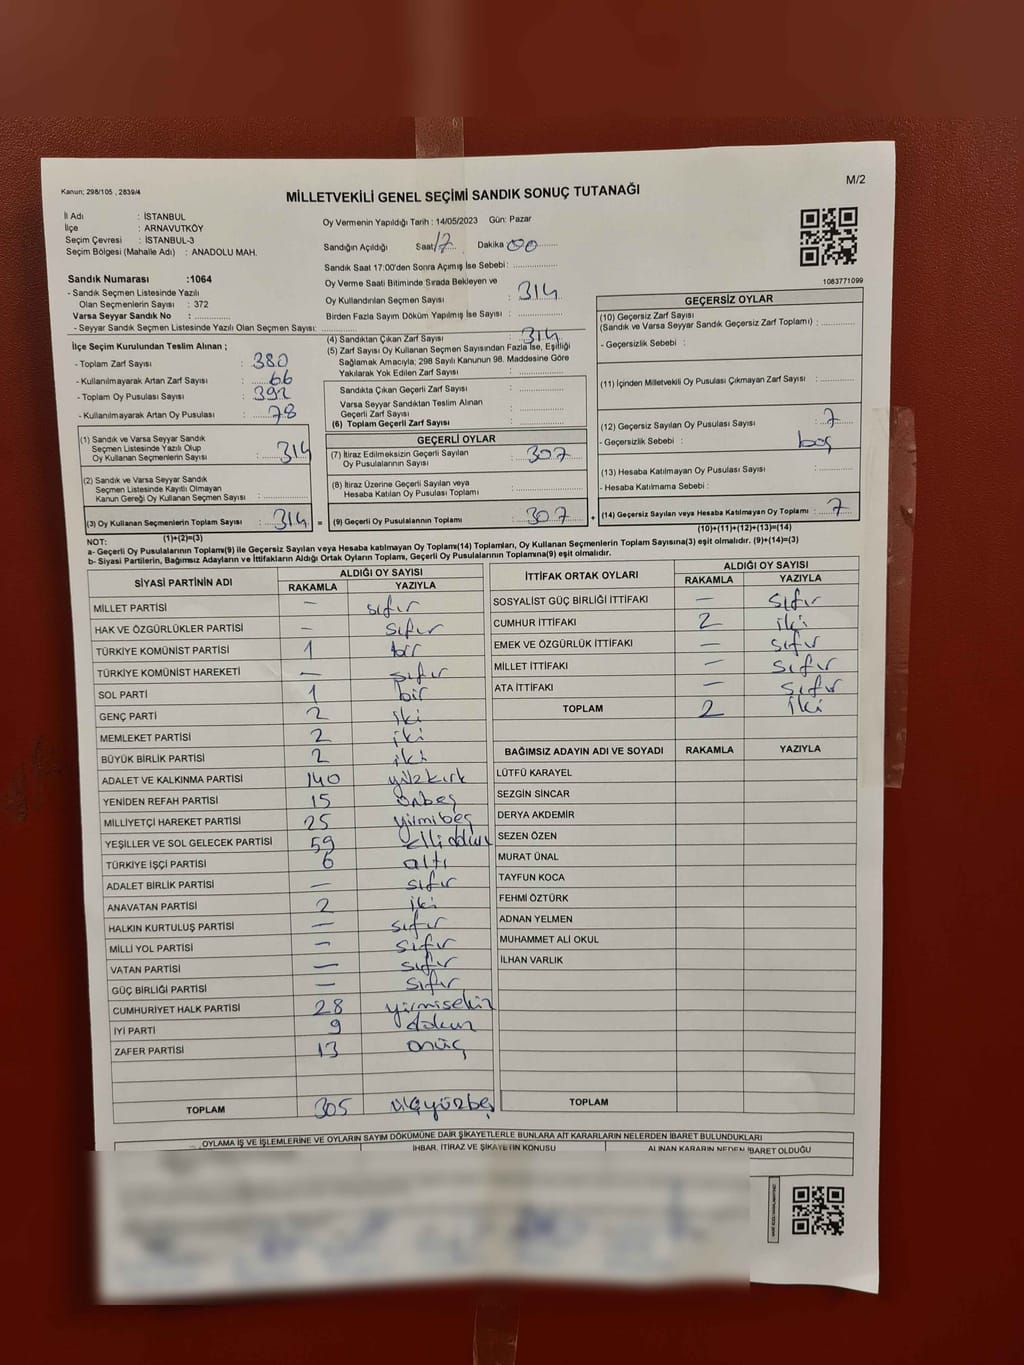 Kanun; 298/105 , 2839/4
M/2
MİLLETVEKİLİ GENEL SEÇİMİ SANDIK SONUÇ TUTANAĞI
İl Adı : İSTANBUL
İlçe : ARNAVUTKÖY
Seçim Çevresi : İSTANBUL-3
Seçim Bölgesi (Mahalle Adı) : ANADOLU MAH.
Oy Vermenin Yapıldığı Tarih : 14/05/2023 Gün: Pazar
Sandığın Açıldığı Saat 17 Dakika 00
Sandık Saat 17:00'den Sonra Açımış İse Sebebi:
Oy Verme Saati Bitiminde Sırada Bekleyen ve
Oy Kullandırılan Seçmen Sayısı : 314
Birden Fazla Sayım Döküm Yapılmış İse Sayısı :
1083771099
Sandık Numarası :1064
- Sandık Seçmen Listesinde Yazılı
Olan Seçmenlerin Sayısı : 372
Varsa Seyyar Sandık No :
- Seyyar Sandık Seçmen Listesinde Yazılı Olan Seçmen Sayısı:
İlçe Seçim Kurulundan Teslim Alınan ;
- Toplam Zarf Sayısı : 380
- Kullanılmayarak Artan Zarf Sayısı : 66
- Toplam Oy Pusulası Sayısı : 392
- Kullanılmayarak Artan Oy Pusulası : 78
(1) Sandık ve Varsa Seyyar Sandık
Seçmen Listesinde Yazılı Olup
Oy Kullanan Seçmenlerin Sayısı : 314
(2) Sandık ve Varsa Seyyar Sandık
Seçmen Listesinde Kayıtlı Olmayan
Kanun Gereği Oy Kullanan Seçmen Sayısı :
(3) Oy Kullanan Seçmenlerin Toplam Sayısı : 314 =
(1)+(2)=(3)
(4) Sandıktan Çıkan Zarf Sayısı : 314
(5) Zarf Sayısı Oy Kullanan Seçmen Sayısından Fazla İse, Eşitliği
Sağlamak Amacıyla; 298 Sayılı Kanunun 98. Maddesine Göre
Yakılarak Yok Edilen Zarf Sayısı :
Sandıkta Çıkan Geçerli Zarf Sayısı :
Varsa Seyyar Sandıktan Teslim Alınan
Geçerli Zarf Sayısı :
(6) Toplam Geçerli Zarf Sayısı :
GEÇERLİ OYLAR
(7) İtiraz Edilmeksizin Geçerli Sayılan
Oy Pusulalarının Sayısı : 307
(8) İtiraz Üzerine Geçerli Sayılan veya
Hesaba Katılan Oy Pusulası Toplamı :
(9) Geçerli Oy Pusulalarının Toplamı : 307 +
GEÇERSİZ OYLAR
(10) Geçersiz Zarf Sayısı
(Sandık ve Varsa Seyyar Sandık Geçersiz Zarf Toplamı) :
- Geçersizlik Sebebi :
(11) İçinden Milletvekili Oy Pusulası Çıkmayan Zarf Sayısı :
(12) Geçersiz Sayılan Oy Pusulası Sayısı : 7
- Geçersizlik Sebebi : boş
(13) Hesaba Katılmayan Oy Pusulası Sayısı :
- Hesaba Katılmama Sebebi :
(14) Geçersiz Sayılan veya Hesaba Katılmayan Oy Toplamı : 7
(10)+(11)+(12)+(13)=(14)
NOT:
a- Geçerli Oy Pusulalarının Toplamı(9) ile Geçersiz Sayılan veya Hesaba katılmayan Oy Toplamı(14) Toplamları, Oy Kullanan Seçmenlerin Toplam Sayısına(3) eşit olmalıdır. (9)+(14)=(3)
b- Siyasi Partilerin, Bağımsız Adayların ve İttifakların Aldığı Ortak Oyların Toplamı, Geçerli Oy Pusulalarının Toplamına(9) eşit olmalıdır.
SİYASİ PARTİNİN ADI ALDIĞI OY SAYISI
RAKAMLA YAZIYLA
MİLLET PARTİSİ — sıfır
HAK VE ÖZGÜRLÜKLER PARTİSİ — sıfır
TÜRKİYE KOMÜNİST PARTİSİ 1 bir
TÜRKİYE KOMÜNİST HAREKETİ — sıfır
SOL PARTİ 1 bir
GENÇ PARTİ 2 iki
MEMLEKET PARTİSİ 2 iki
BÜYÜK BİRLİK PARTİSİ 2 iki
ADALET VE KALKINMA PARTİSİ 140 yüzkırk
YENİDEN REFAH PARTİSİ 15 onbeş
MİLLİYETÇİ HAREKET PARTİSİ 25 yirmibeş
YEŞİLLER VE SOL GELECEK PARTİSİ 59 ellidokuz
TÜRKİYE İŞÇİ PARTİSİ 6 altı
ADALET BİRLİK PARTİSİ — sıfır
ANAVATAN PARTİSİ 2 iki
HALKIN KURTULUŞ PARTİSİ — sıfır
MİLLİ YOL PARTİSİ — sıfır
VATAN PARTİSİ — sıfır
GÜÇ BİRLİĞİ PARTİSİ — sıfır
CUMHURİYET HALK PARTİSİ 28 yirmisekiz
İYİ PARTİ 9 dokuz
ZAFER PARTİSİ 13 onüç
TOPLAM 305 üçyüzbeş
İTTİFAK ORTAK OYLARI ALDIĞI OY SAYISI
RAKAMLA YAZIYLA
SOSYALİST GÜÇ BİRLİĞİ İTTİFAKI — sıfır
CUMHUR İTTİFAKI 2 iki
EMEK VE ÖZGÜRLÜK İTTİFAKI — sıfır
MİLLET İTTİFAKI — sıfır
ATA İTTİFAKI — sıfır
TOPLAM 2 iki
BAĞIMSIZ ADAYIN ADI VE SOYADI RAKAMLA YAZIYLA
LÜTFÜ KARAYEL
SEZGİN SİNCAR
DERYA AKDEMİR
SEZEN ÖZEN
MURAT ÜNAL
TAYFUN KOCA
FEHMİ ÖZTÜRK
ADNAN YELMEN
MUHAMMET ALİ OKUL
İLHAN VARLIK
TOPLAM
OYLAMA İŞ VE İŞLEMLERİNE VE OYLARIN SAYIM DÖKÜMÜNE DAİR ŞİKAYETLERLE BUNLARA AİT KARARLARIN NELERDEN İBARET BULUNDUKLARI
İHBAR, İTİRAZ VE ŞİKAYETİN KONUSU ALINAN KARARIN NEDEN İBARET OLDUĞU